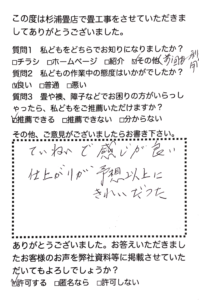 この度は杉浦畳店で畳工事をさせていただきま
してありがとうございました。
質問1 私どもをどちらでお知りになりましたか？
□チラシ □ホームページ □紹介 ☑その他
質問2 私どもの作業中の態度はいかがでしたか？
☑良い □普通 □悪い
質問3 畳や襖、障子などでお困りの方がいらっし
ゃったら、私どもをご推薦いただけますか？
☑推薦できる □推薦できない □分からない
その他、ご意見がございましたらお書き下さい。
ていねいで感じが良い
仕上がりが予想以上に
きれいだった
ありがとうございました。お答えいただきまし
たお客様のお声を弊社資料等に掲載させていた
だいてもよろしでしょうか？
☑許可する □匿名なら □許可しない